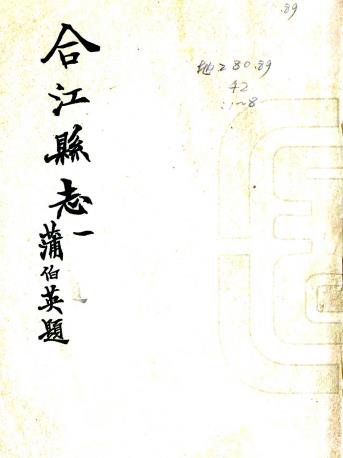 合江縣志一
蒲伯英題
.89
地280.89
42
:1~8